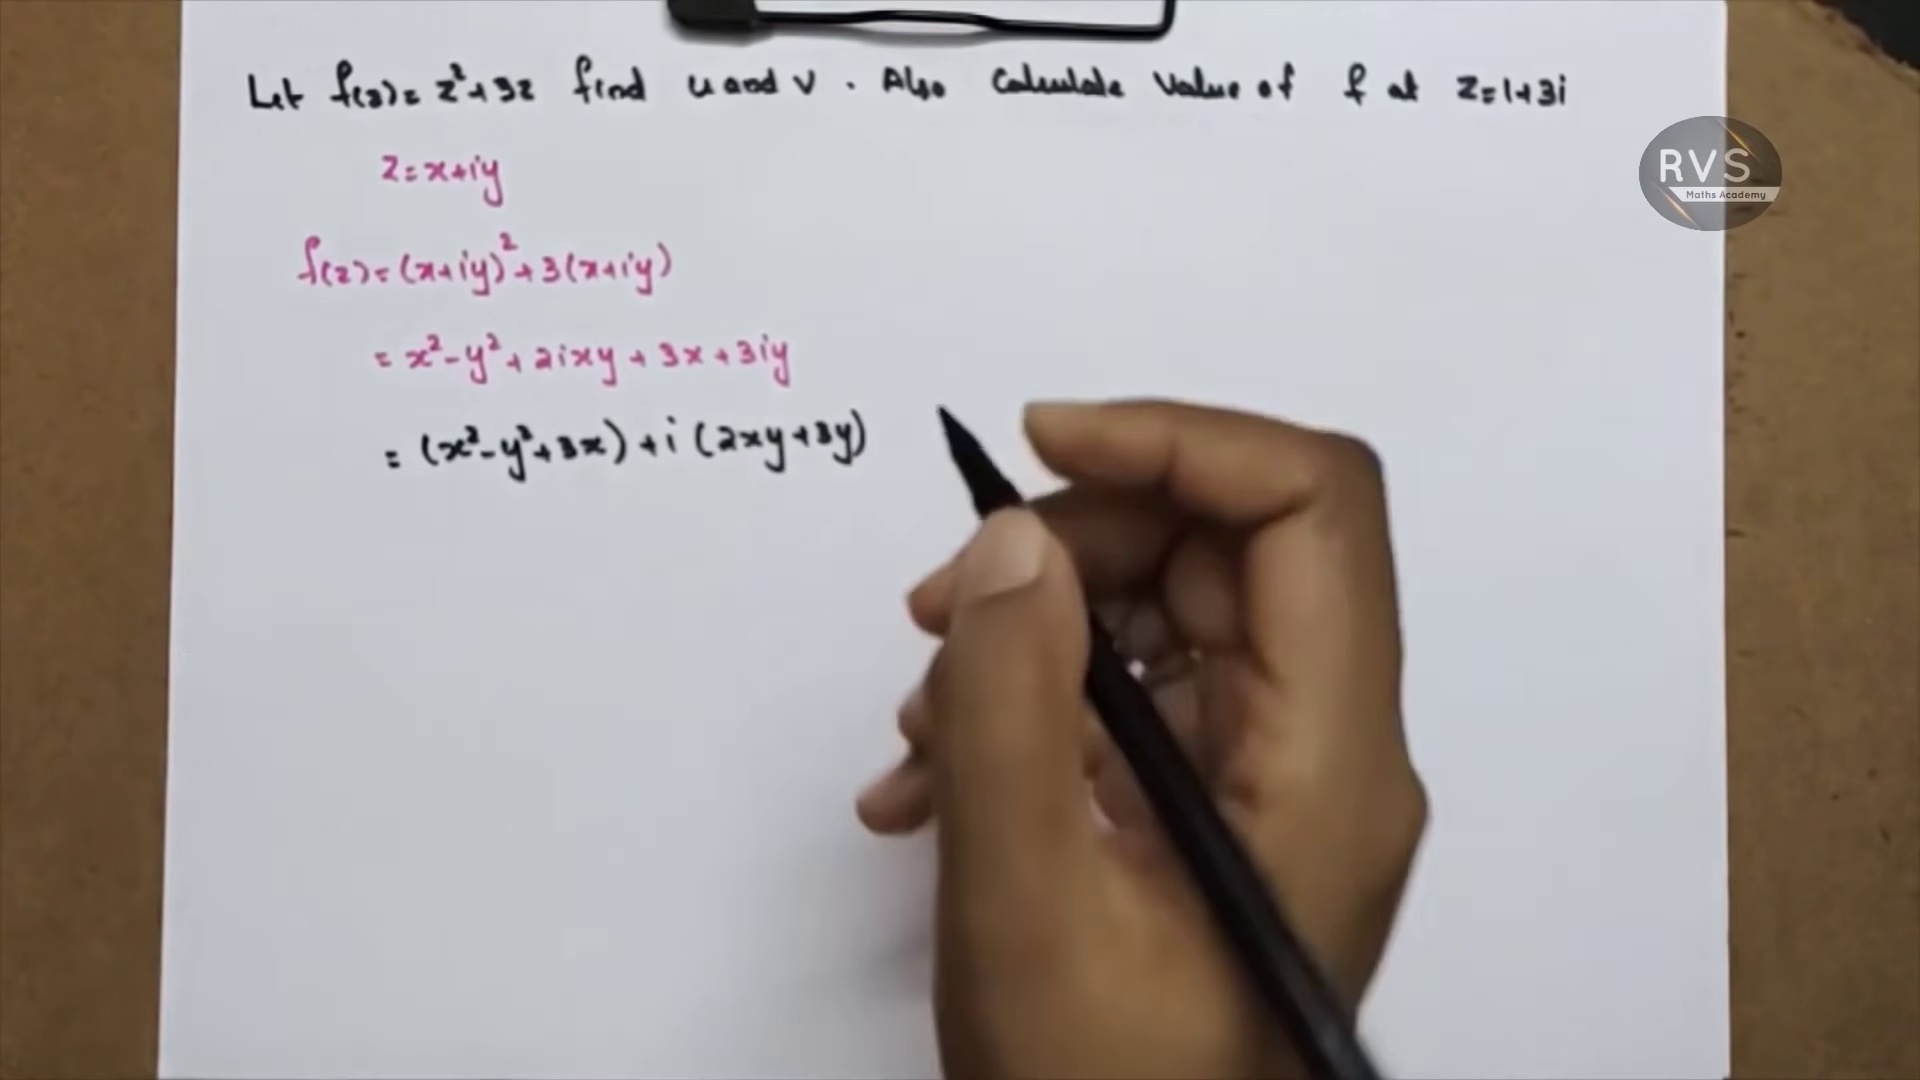 Let f(z) = z²+3z find u and v. Also Calculate Value of f at z=1+3i
RVS
Maths Academy
z=x+iy
f(z)=(x+iy)²+3(x+iy)
= x²-y²+2ixy+3x+3iy
= (x²-y²+3x)+i(2xy+3y)